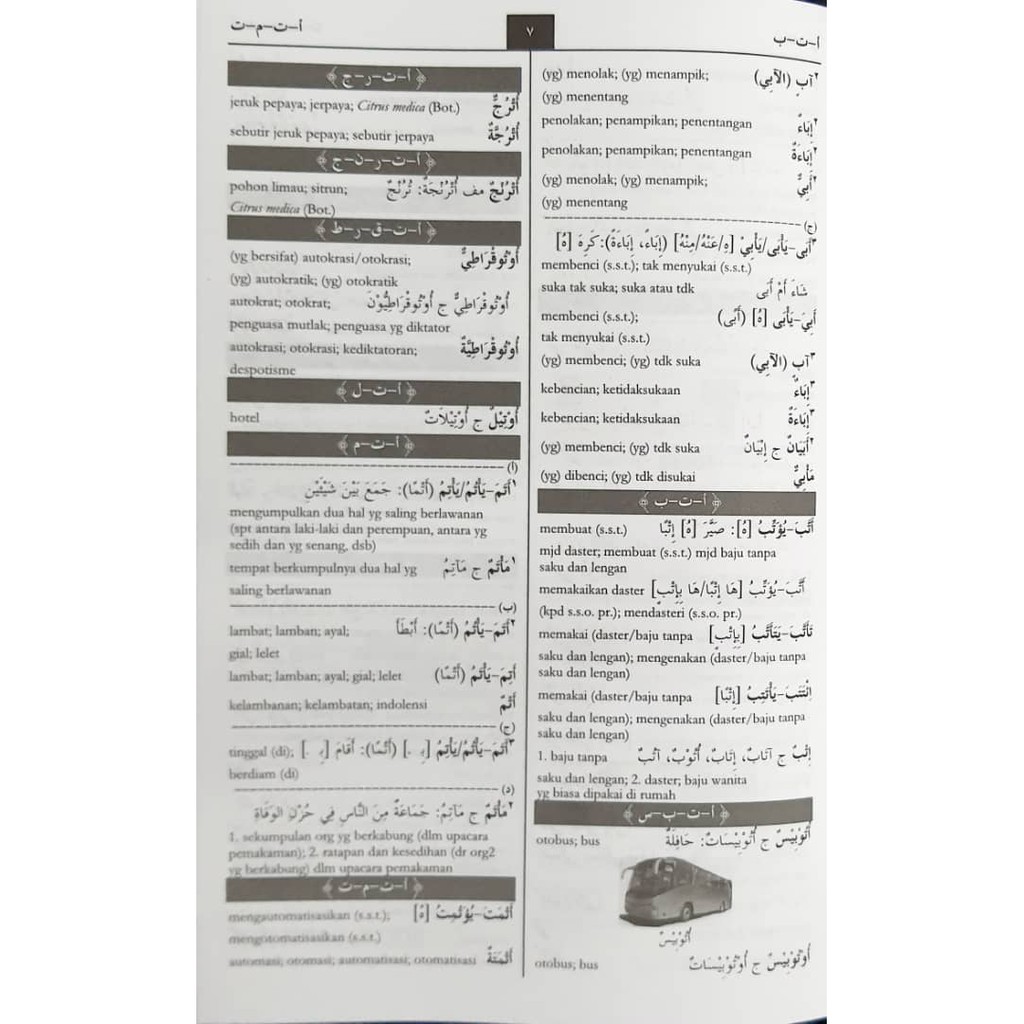 أ–ت–ب
٧
أ–ت–م–ت
٢آبٍ (الآبِي) (yg) menolak; (yg) menampik;
(yg) menentang
٢إِبَاءٌ penolakan; penampikan; penentangan
٢إِبَاءَةٌ penolakan; penampikan; penentangan
٢أَبِيٌّ (yg) menolak; (yg) menampik;
(yg) menentang
(ج)
٣أَبَى–يَأْبَى/يَأْبِيْ [هِ/عَنْهُ/مِنْهُ] (إِبَاءً، إِبَاءَةً): كَرِهَ [هُ]
membenci (s.s.t.); tak menyukai (s.s.t.)
شَاءَ أَمْ أَبَى suka tak suka; suka atau tdk
أَبِيَ–يَأْبَى [هُ] (أَبًى) membenci (s.s.t.);
tak menyukai (s.s.t.)
٣آبٍ (الآبِي) (yg) membenci; (yg) tdk suka
٣إِبَاءٌ kebencian; ketidaksukaan
٣إِبَاءَةٌ kebencian; ketidaksukaan
٢أَبَيَانٌ ج إِبْيَانٌ (yg) membenci; (yg) tdk suka
مَأْبِيٌّ (yg) dibenci; (yg) tdk disukai
﴿ أ–ت–ب ﴾
أَتَّبَ–يُؤَتِّبُ [هُ]: صَيَّرَ [هُ] إِتْبًا membuat (s.s.t.)
mjd daster; membuat (s.s.t.) mjd baju tanpa
saku dan lengan
أَتَّبَ–يُؤَتِّبُ [هَا إِتْبًا/هَا بِإِتْبٍ] memakaikan daster
(kpd s.s.o. pr.); mendasteri (s.s.o. pr.)
تَأَتَّبَ–يَتَأَتَّبُ [بِإِتْبٍ] memakai (daster/baju tanpa
saku dan lengan); mengenakan (daster/baju tanpa
saku dan lengan)
اِئْتَتَبَ–يَأْتَتِبُ [إِتْبًا] memakai (daster/baju tanpa
saku dan lengan); mengenakan (daster/baju tanpa
saku dan lengan)
إِتْبٌ ج آتَابٌ، إِتَابٌ، أُتُوْبٌ، آتُبٌ 1. baju tanpa
saku dan lengan; 2. daster; baju wanita
yg biasa dipakai di rumah
﴿ أ–ت–ب–س ﴾
أُتُوْبِيْسٌ ج أُتُوْبِيْسَاتٌ: حَافِلَةٌ otobus; bus
أُتُوْبِيْسٌ
أُوْتُوْبِيْسٌ ج أُوْتُوْبِيْسَاتٌ otobus; bus
﴿ أ–ت–ر–ج ﴾
أُتْرُجٌّ jeruk pepaya; jerpaya; Citrus medica (Bot.)
أُتْرُجَّةٌ sebutir jeruk pepaya; sebutir jerpaya
﴿ أ–ت–ر–ن–ج ﴾
أُتْرُنْجٌ مف أُتْرُنْجَةٌ: تُرُنْجٌ pohon limau; sitrun;
Citrus medica (Bot.)
﴿ أ–ت–ق–ر–ط ﴾
أُوْتُوْقْرَاطِيٌّ (yg bersifat) autokrasi/otokrasi;
(yg) autokratik; (yg) otokratik
أُوْتُوْقْرَاطِيٌّ ج أُوْتُوْقْرَاطِيُّوْنَ autokrat; otokrat;
penguasa mutlak; penguasa yg diktator
أُوْتُوْقْرَاطِيَّةٌ autokrasi; otokrasi; kediktatoran;
despotisme
﴿ أ–ت–ل ﴾
أُوْتِيْلٌ ج أُوْتِيْلَاتٌ hotel
﴿ أ–ت–م ﴾
(أ)
١أَتَمَ–يَأْتُمُ/يَأْتِمُ (أَتْمًا): جَمَعَ بَيْنَ شَيْئَيْنِ
mengumpulkan dua hal yg saling berlawanan
(spt antara laki-laki dan perempuan, antara yg
sedih dan yg senang, dsb)
١مَأْتَمٌ ج مَآتِمُ tempat berkumpulnya dua hal yg
saling berlawanan
(ب)
٢أَتَمَ–يَأْتُمُ (أَتْمًا): أَبْطَأَ lambat; lamban; ayal;
gial; lelet
أَتِمَ–يَأْتَمُ (أَتَمًا) lambat; lamban; ayal; gial; lelet
أَتْمٌ kelambanan; kelambatan; indolensi
(ج)
٣أَتَمَ–يَأْتُمُ/يَأْتِمُ [بِـ .] (أَتْمًا): أَقَامَ [بِـ .] tinggal (di);
berdiam (di)
(د)
٢مَأْتَمٌ ج مَآتِمُ: جَمَاعَةٌ مِنَ النَّاسِ فِي حُزْنِ الوَفَاةِ
1. sekumpulan org yg berkabung (dlm upacara
pemakaman); 2. ratapan dan kesedihan (dr org2
yg berkabung) dlm upacara pemakaman
﴿ أ–ت–م–ت ﴾
أَتْمَتَ–يُؤَتْمِتُ [هُ] mengautomatisasikan (s.s.t.);
mengotomatisasikan (s.s.t.)
أَتْمَتَةٌ automasi; otomasi; automatisasi; otomatisasi